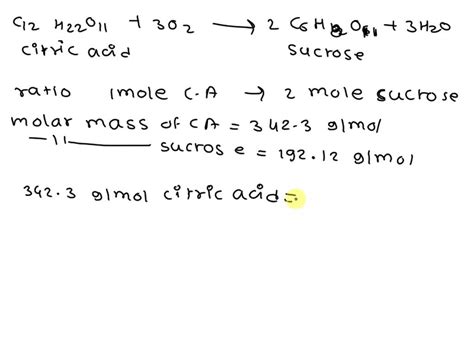 C12 H22O11 + 3O2 → 2 C6H8O11 + 3H2O
citric acid sucrose
ratio 1mole C.A → 2 mole sucrose
molar mass of CA = 342.3 g/mol
—11— sucrose = 192.12 g/mol
342.3 g/mol citric acid =